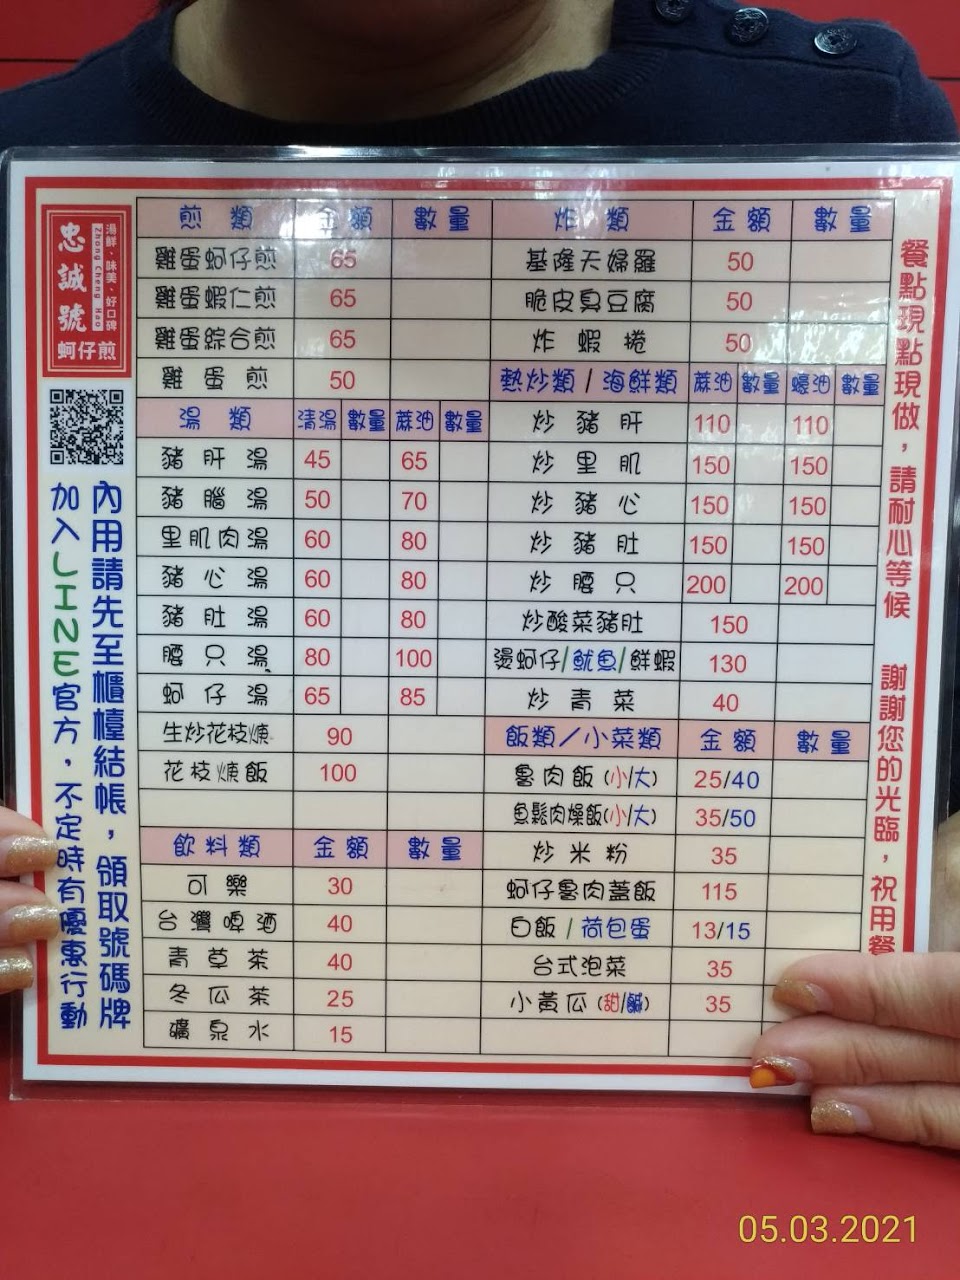 湯鮮、味美、好口碑
Zhong Cheng Hao
忠誠號
蚵仔煎
內用請先至櫃檯結帳，領取號碼牌
加入LINE官方，不定時有優惠行動
煎類 金額 數量
雞蛋蚵仔煎 65
雞蛋蝦仁煎 65
雞蛋綜合煎 65
雞蛋煎 50
湯類 清湯 數量 蔴油 數量
豬肝湯 45 65
豬腦湯 50 70
里肌肉湯 60 80
豬心湯 60 80
豬肚湯 60 80
腰只湯 80 100
蚵仔湯 65 85
生炒花枝焿 90
花枝焿飯 100
飲料類 金額 數量
可樂 30
台灣啤酒 40
青草茶 40
冬瓜茶 25
礦泉水 15
炸類 金額 數量
基隆天婦羅 50
脆皮臭豆腐 50
炸蝦捲 50
熱炒類/海鮮類 蔴油 數量 蠔油 數量
炒豬肝 110 110
炒里肌 150 150
炒豬心 150 150
炒豬肚 150 150
炒腰只 200 200
炒酸菜豬肚 150
燙蚵仔/魷魚/鮮蝦 130
炒青菜 40
飯類/小菜類 金額 數量
魯肉飯(小/大) 25/40
魚鬆肉燥飯(小/大) 35/50
炒米粉 35
蚵仔魯肉蓋飯 115
白飯/荷包蛋 13/15
台式泡菜 35
小黃瓜(甜/鹹) 35
餐點現點現做，請耐心等候
謝謝您的光臨，祝用餐
05.03.2021